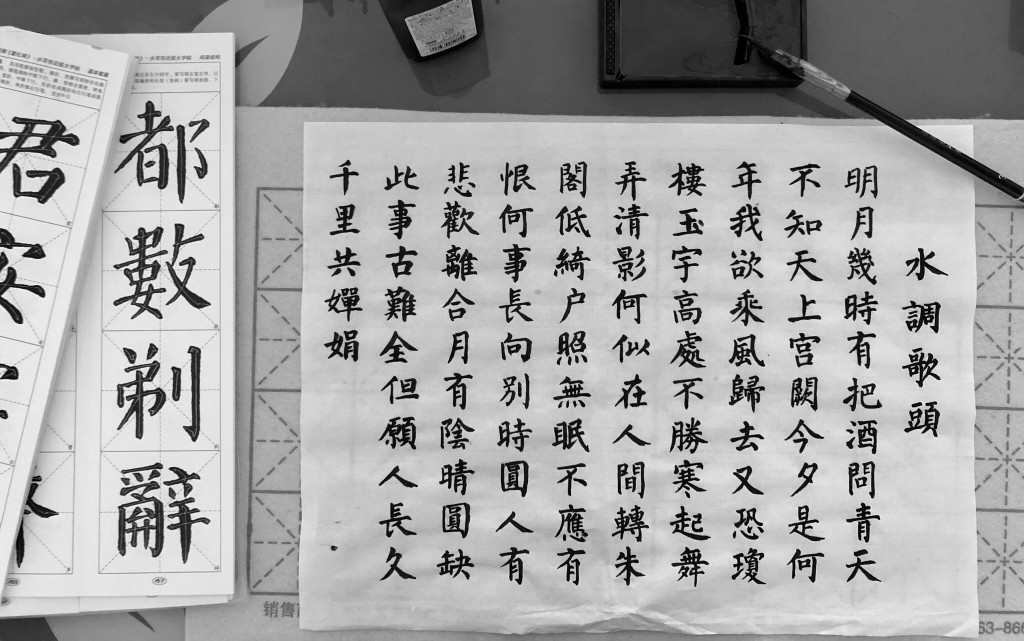 水調歌頭
明月幾時有把酒問青天
不知天上宮闕今夕是何
年我欲乘風歸去又恐瓊
樓玉宇高處不勝寒起舞
弄清影何似在人間轉朱
閣低綺户照無眠不應有
恨何事長向別時圓人有
悲歡離合月有陰晴圓缺
此事古難全但願人長久
千里共嬋娟
都數剃辭
君安
47
销售
63-866